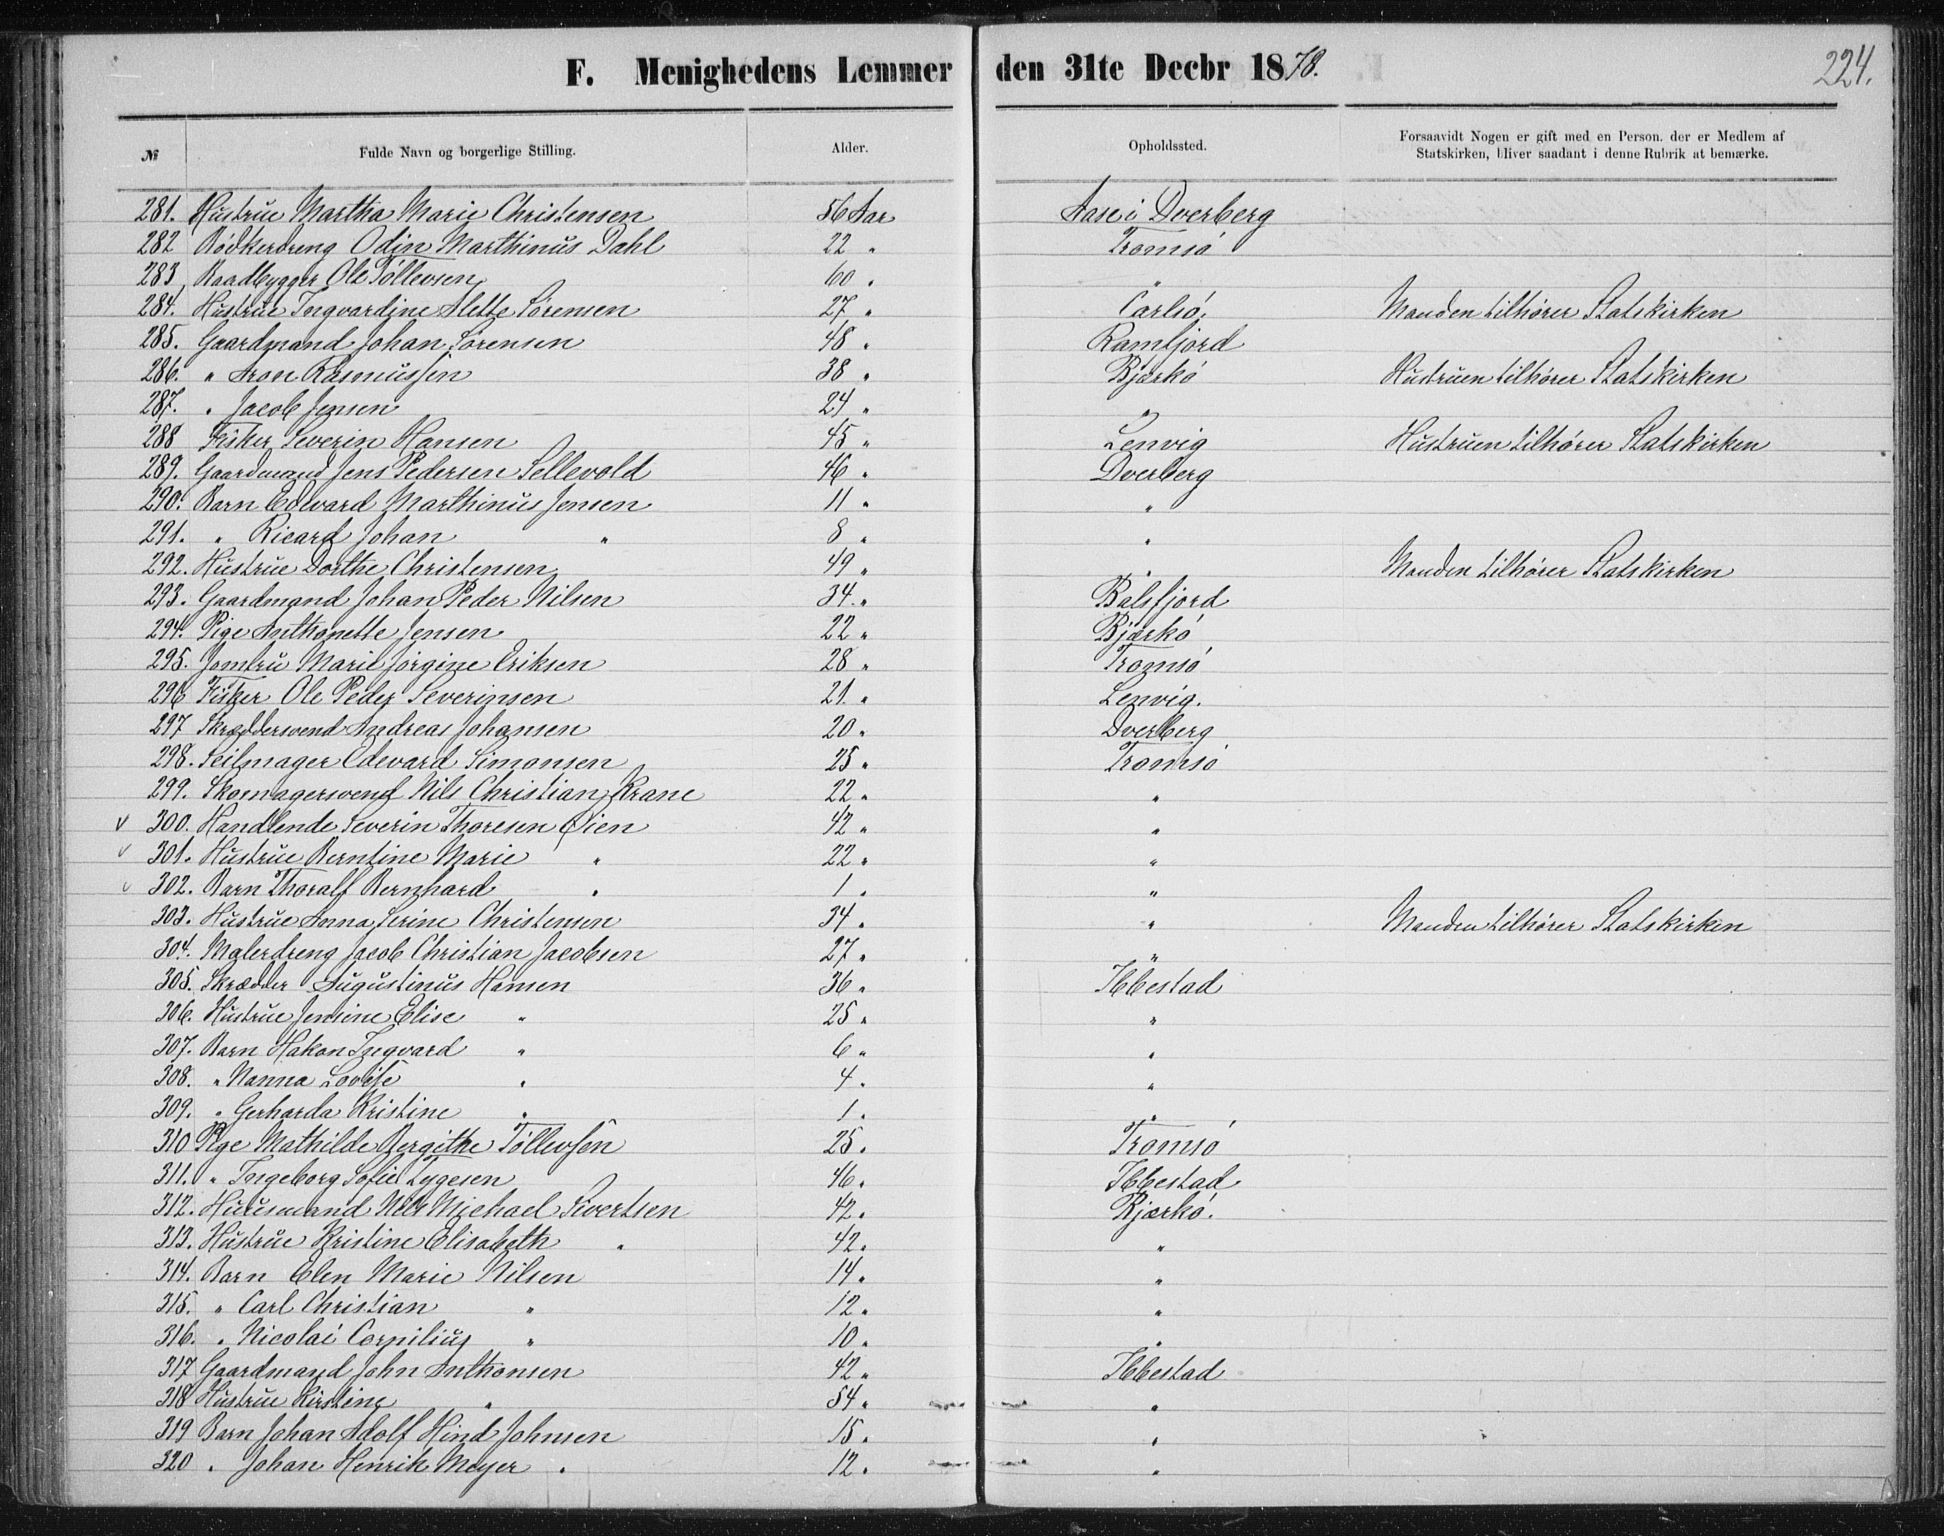 F. Menighedens Lemmer den 31te Decbr 1878.
224.
№ Fulde Navn og borgerlige Stilling. Alder. Opholdssted. Forsaavidt Nogen er gift med en Person, der er Medlem af
Statskirken, bliver saadant i denne Rubrik at bemærke.
281. Hustrue Martha Marie Christensen 56 Aar Aase i Dverberg
282 Bödkerdreng Odin Marthinus Dahl 22 " Tromsö
283 Baadbygger Ole Tøllevsen 60 " "
284. Hustrue Ingvardine Alette Sørensen 27 " Carlsö. Manden tilhører Statskirken
285. Gaardmand Johan Sørensen 48 " Ramfjord
286. " Aron Rasmussen 38 " Bjarkö Hustruen tilhører Statskirken
287. " Jacob Jensen 24 " "
288 Fisker Severin Hansen 45 " Lenvig Hustruen tilhører Statskirken
289. Gaardmand Jens Pedersen Sellevold 46 " Dverberg
290. Barn Edevard Marthinus Jensen 11 " "
291. " Ricard Johan " 8 " "
292. Hustrue Dorthe Christensen 49 " " Manden tilhører Statskirken
293. Gaardmand Johan Peder Nilsen 34. " Balsfjord
294. Pige Anthonette Jensen 22 " Bjarkö
295. Jomfru Marie Jørgine Eriksen 28 " Tromsö
296 Fisker Ole Peder Severinsen 21. " Lenvig.
297 Skræddersvend Andreas Johansen 20 " Dverberg
298. Seilmager Edevard Simonsen 25 " Tromsö
299. Skomagersvend Nils Christian Krane 22 " "
v 300. Handlende Severin Thoresen Øien 42 " "
v 301. Hustrue Berntine Marie " 22 " "
v 302. Barn Thoralf Bernhard " 1 " "
303. Hustrue Anna Serine Christensen 34 " " Manden tilhører Statskirken
304. Malerdreng Jacob Christian Jacobsen 27 " "
305. Skrædder Augustinus Hansen 36 " Ibbestad
306. Hustrue Jensine Elise " 25 " "
307. Barn Hakon Ingvard " 6 " "
308. " Nanna Lovise " 4 " "
309. " Gerharda Kristine " 1 " "
310 Pige Mathilde Bergithe Tøllevsen 25 " Tromsö
311. " Ingeborg Sofie Tygesen 46 " Ibbestad
312. Huusmand Nils Michael Sivertsen 42 " Bjarkö.
313. Hustrue Kristine Elisabeth " 42 " "
314. Barn Elen Marie Nilsen 14 " "
315. " Carl Christian " 12 " "
316. " Nicolai Cornilius " 10 " "
317 Gaardmand John Anthonsen 42 " Ibbestad
318 Hustrue Kirstine " 54 " "
319 Barn Johan Adolf Hind Johnsen 15 " "
320 " Johan Henrik Meyer " 12 " "